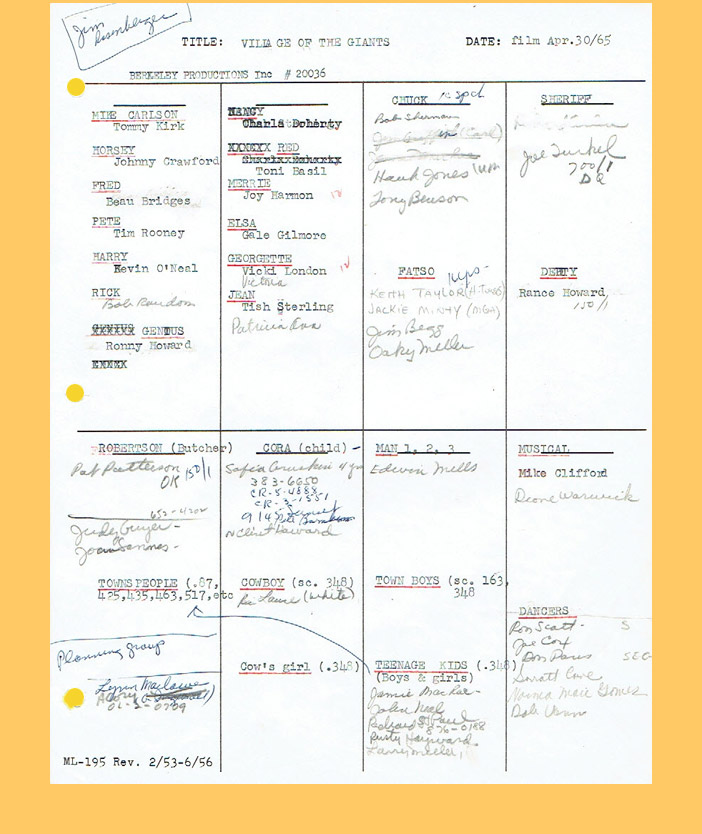 Jim
TITLE: VILLAGE OF THE GIANTS DATE: film Apr.30/65
BERKELEY PRODUCTIONS Inc # 20036
MIKE CARLSON
Tommy Kirk
HORSEY
Johnny Crawford
FRED
Beau Bridges
PETE
Tim Rooney
HARRY
Kevin O'Neal
RICK
Bob Random
GENIUS
Ronny Howard
NANCY
Charla Doherty
RED
Toni Basil
MERRIE
Joy Harmon
ELSA
Gale Gilmore
GEORGETTE
Vicki London
Victoria
JEAN
Tish Sterling
Patricia
CHUCK
Bob Sherman
Hank Jones
Tony Benson
FATSO
KEITH TAYLOR (H. TUBBS)
JACKIE MINTY (MGA)
Jim Begg
Oaky Miller
SHERIFF
Joe Turkel
700/1
DEPTY
Rance Howard
150/1
ROBERTSON (Butcher)
Pat Patterson 150/1
OK
652-4202
Judy
Joan
CORA (child) -
4 yrs
383-6650
CR-5-4888
CR-3-1551
Clint Howard
MAN 1, 2, 3
Edwin Mills
MUSICAL
Mike Clifford
Dione Warwick
TOWNSPEOPLE (.87,
425,435,463,517,etc
COWBOY (sc. 348)
(white)
TOWN BOYS (sc. 163,
348
DANCERS
Ron Scott - S
Joe Cox
Don SEG
Norma Marie Gomes
Bob
Planning group
Cow's girl (.348)
TEENAGE KIDS (.348)
(Boys & girls)
Jamie MacRae -
John Neal
Richard Paul
876-0188
Rusty Hayward
Larry Miller,
Lynn Marlowe
OL-2-0709
ML-195 Rev. 2/53-6/56